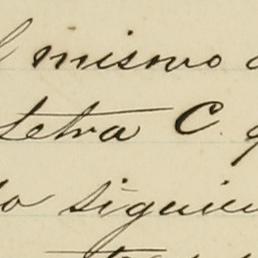 l mismo
letra C.
lo siguien